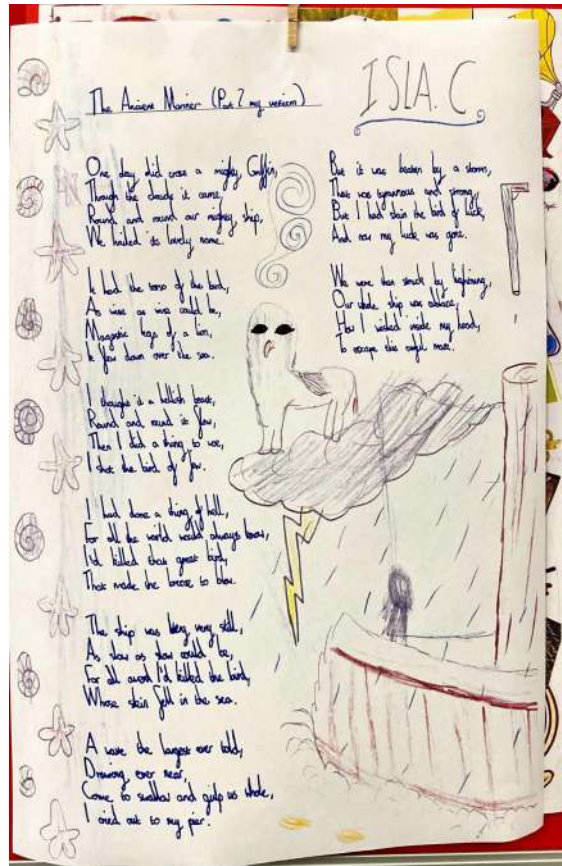 The Ancient Mariner (Part 2 my version)
ISLA. C
One day did cross a mighty Griffin,
Through the clouds it came,
Round and round our mighty ship,
We hailed its lovely name.
It had the torso of the bird,
As wise as wise could be,
Magestic legs of a lion,
It flew down over the sea.
I thought it a hellish beast,
Round and round it flew,
Then I did a thing to woe,
I shot the bird of few.
I had done a thing of hell,
For all the world would always know,
I'd killed that great bird,
That made the breeze to blow.
The ship was very still,
As slow as slow could be,
For all averd I'd killed the bird,
Whose skin fell in the sea.
A wave the largest ever told,
Drawing ever near,
Come to swallow and gulp us whole,
I cried out to my pier.
But it was beaten by a storm,
That was tyranous and strong,
But I had slain the bird of luck,
And now my luck was gone.
We were then struck by lightning,
Our whole ship was ablaze,
How I wished inside my head,
To escape this maze.